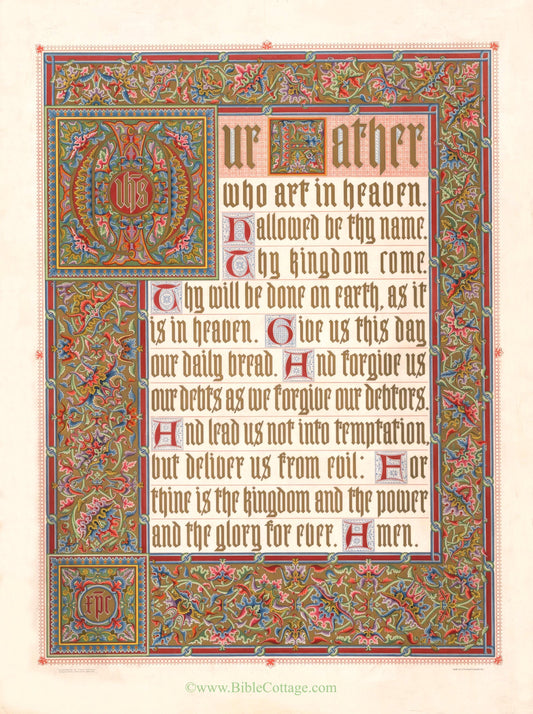 Our Father
ihs
who art in heaven.
Hallowed be thy name.
Thy kingdom come.
Thy will be done on earth, as it
is in heaven. Give us this day
our daily bread. And forgive us
our debts as we forgive our debtors.
And lead us not into temptation,
but deliver us from evil: For
thine is the kingdom and the power
and the glory for ever. Amen.
xpc
©www.BibleCottage.com